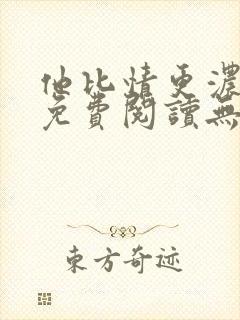 他比情更濃
免費閱讀無
東方奇迹